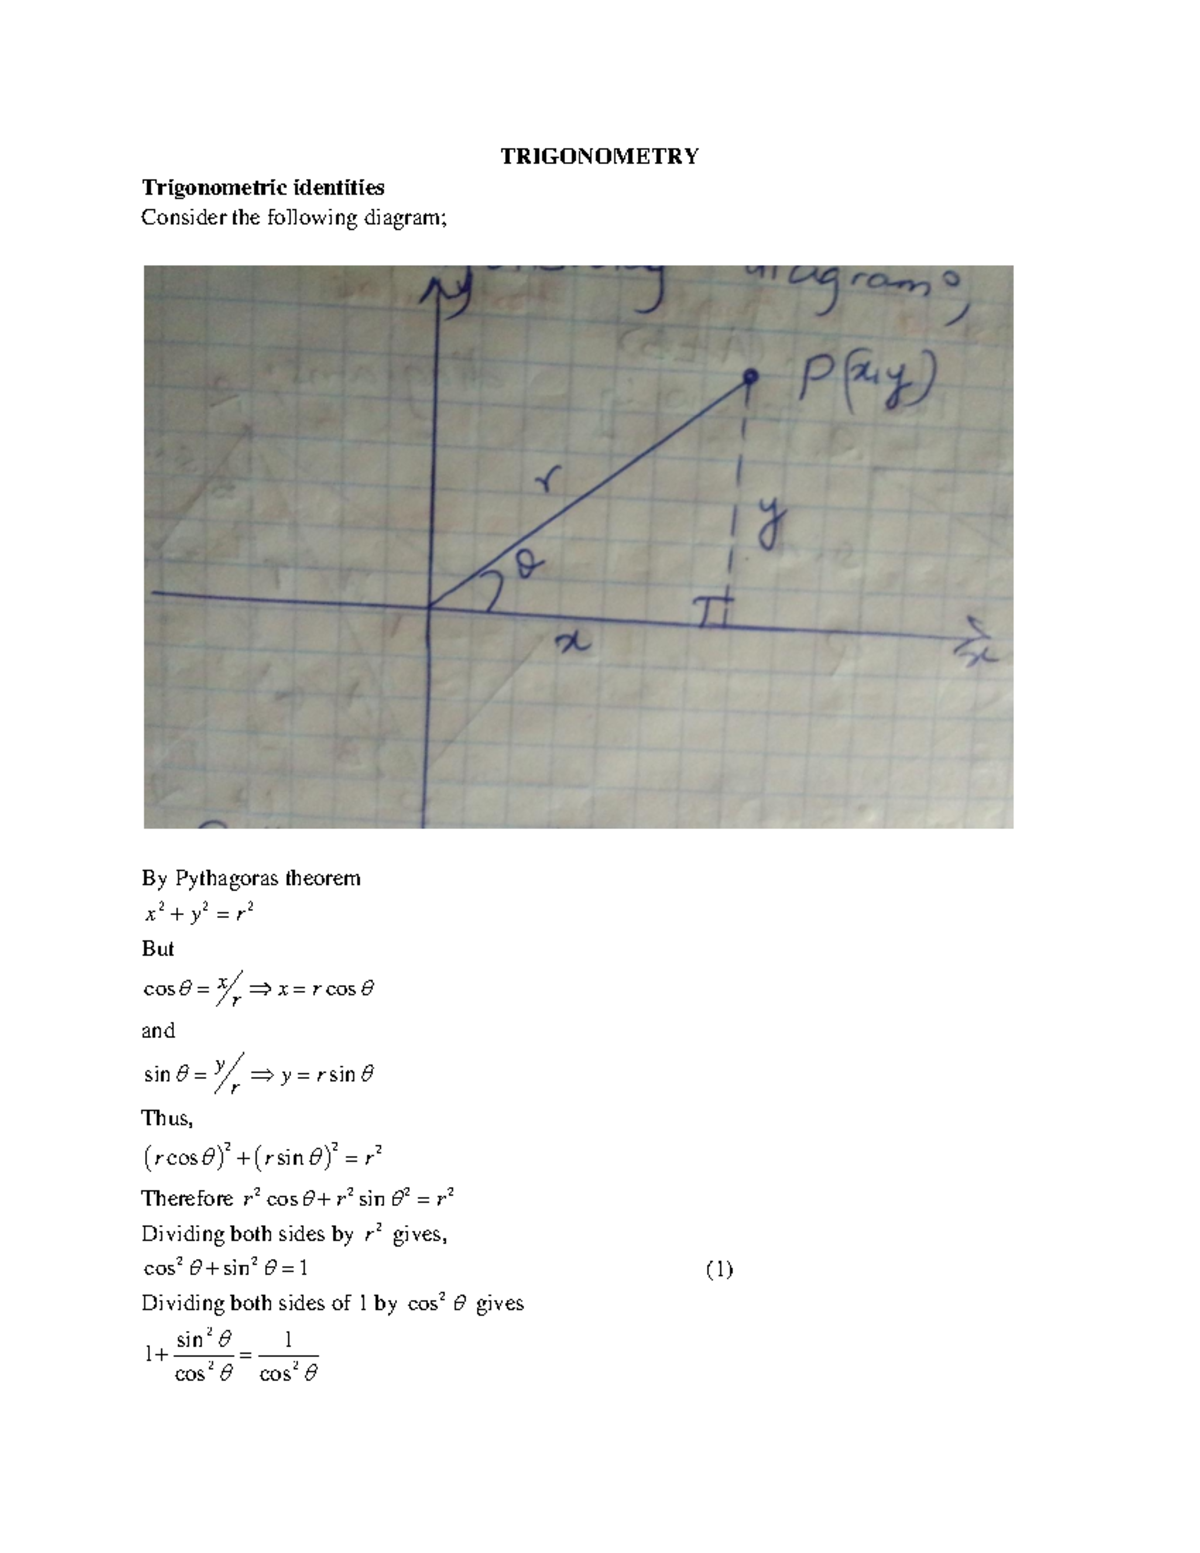 TRIGONOMETRY
Trigonometric identities
Consider the following diagram;
diagram;
y
P(x,y)
r
y
θ
x
x
By Pythagoras theorem
x² + y² = r²
But
cos θ = x/r ⇒ x = r cos θ
and
sin θ = y/r ⇒ y = r sin θ
Thus,
(r cos θ)² + (r sin θ)² = r²
Therefore r² cos θ + r² sin θ² = r²
Dividing both sides by r² gives,
cos² θ + sin² θ = 1 (1)
Dividing both sides of 1 by cos² θ gives
1 + sin² θ / cos² θ = 1 / cos² θ